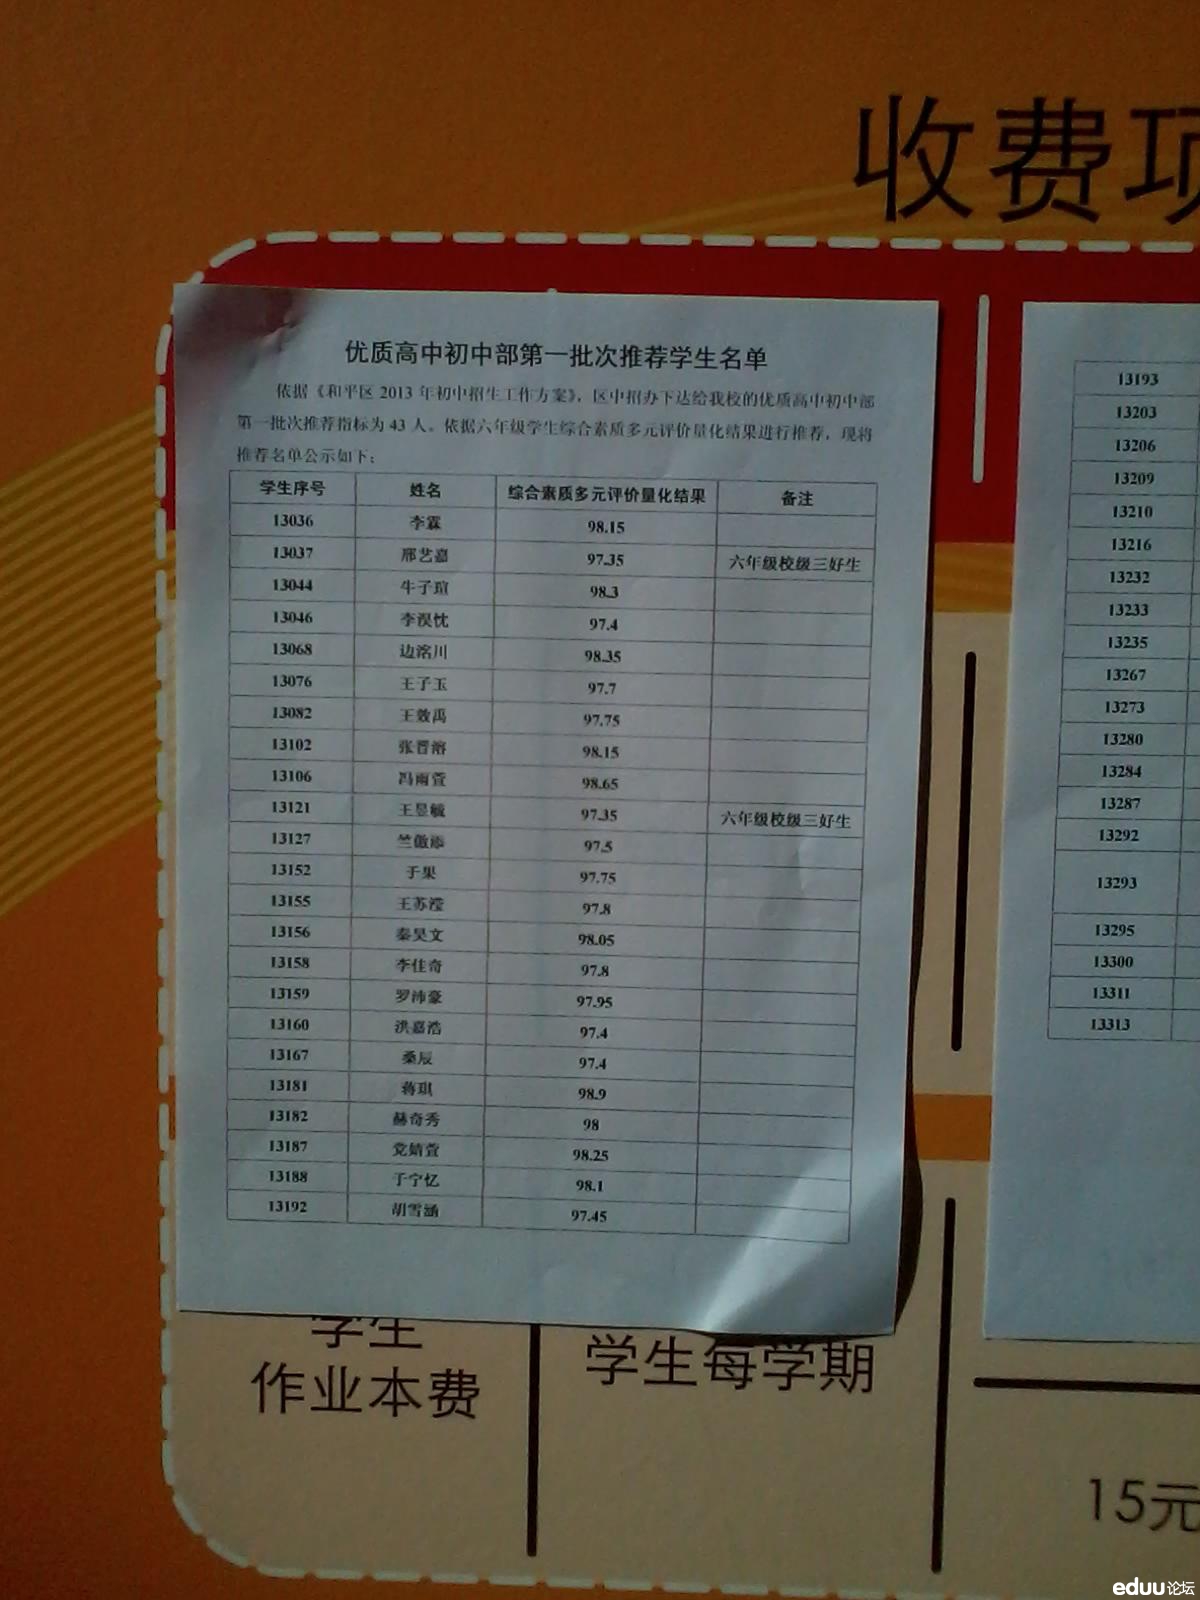 收费项
优质高中初中部第一批次推荐学生名单
依据《和平区 2013 年初中招生工作方案》，区中招办下达给我校的优质高中初中部
第一批次推荐指标为 43 人。依据六年级学生综合素质多元评价量化结果进行推荐，现将
推荐名单公示如下：
学生序号 姓名 综合素质多元评价量化结果 备注
13036 李霖 98.15
13037 邢艺嘉 97.35 六年级校级三好生
13044 牛子瑄 98.3
13046 97.4
13068 边洺川 98.35
13076 王子玉 97.7
13082 王效禹 97.75
13102 张晋溶 98.15
13106 冯雨萱 98.65
13121 王昱毓 97.35 六年级校级三好生
13127 竺傲添 97.5
13152 于果 97.75
13155 王苏滢 97.8
13156 秦昊文 98.05
13158 李佳奇 97.8
13159 罗沛豪 97.95
13160 洪嘉浩 97.4
13167 桑辰 97.4
13181 蒋琪 98.9
13182 赫奇秀 98
13187 党婧萱 98.25
13188 于宁忆 98.1
13192 胡雪涵 97.45
13193
13203
13206
13209
13210
13216
13232
13233
13235
13267
13273
13280
13284
13287
13292
13293
13295
13300
13311
13313
学生
作业本费
学生每学期
15元
eduu论坛